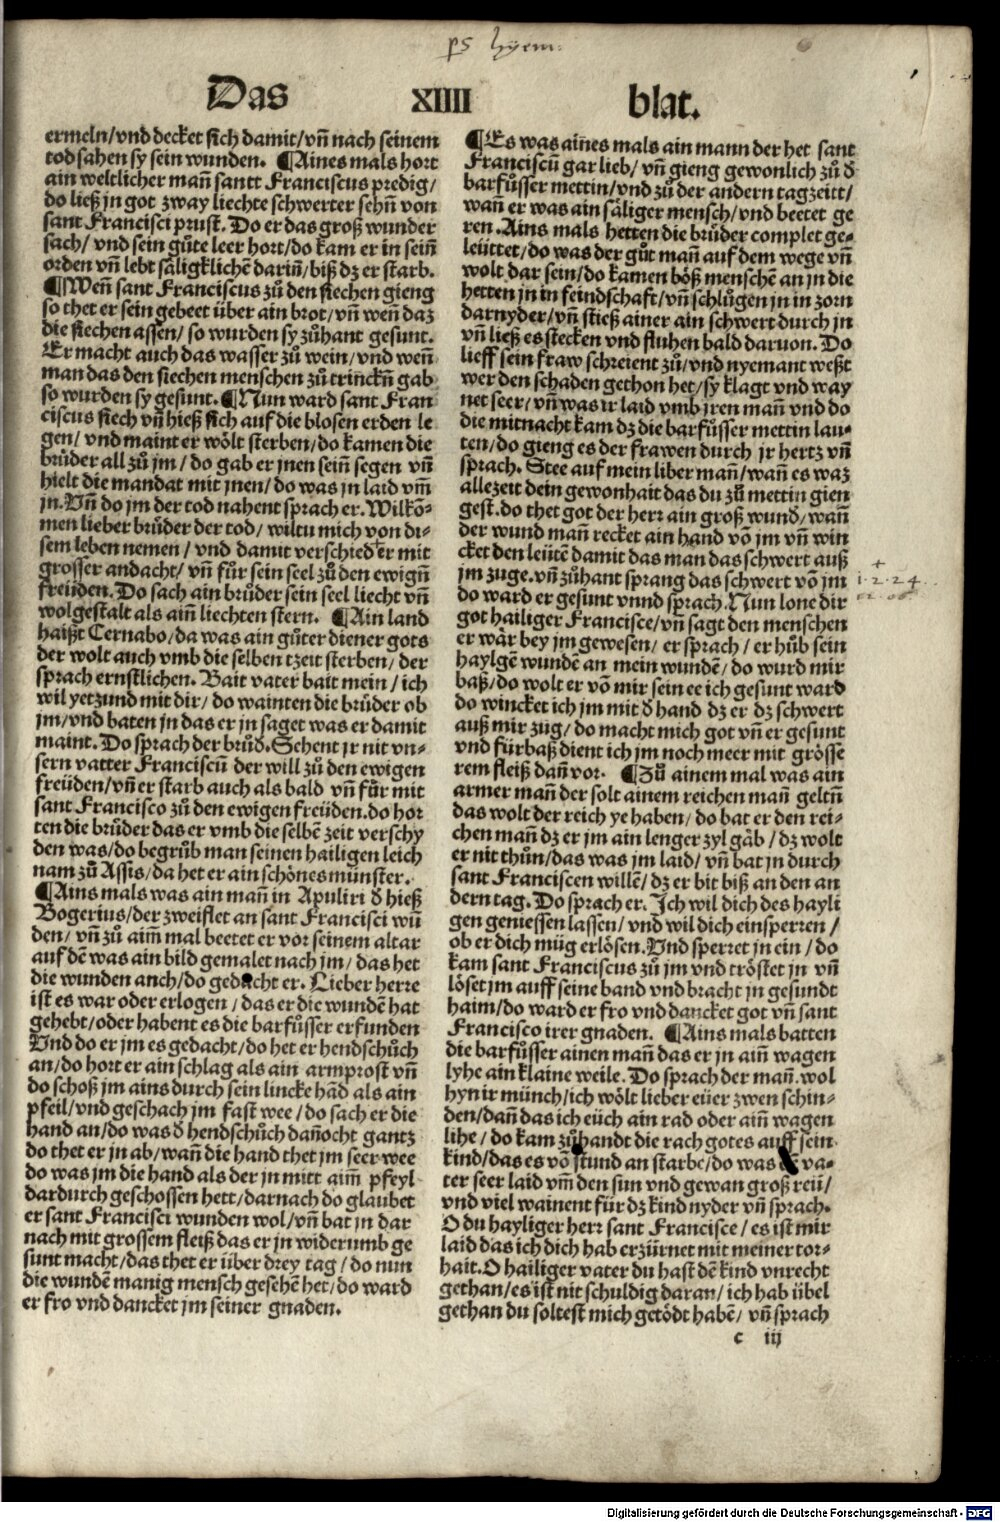 ps hyem:
Das XIIII blat.
ermeln/vnd decket sich damit/vñ nach seinem
tod sahen sy sein wunden. ¶Aines mals hort
ain weltlicher mañ santt Franciscus predig/
do ließ jn got zway liechte schwerter sehñ von
sant Francisci prust. Do er das groß wunder
sach/ vnd sein gůte leer hort/do kam er in seiñ
orden vñ lebt säligklichē dariñ/biß dz er starb.
¶Weñ sant Franciscus zů den siechen gieng
so thet er sein gebeet über ain brot/vñ weñ daz
die siechen assen/ so wurden sy zůhant gesunt.
Er macht auch das wasser zů wein/vnd weñ
man das den siechen menschen zů trinckñ gab
so wurden sy gesunt. ¶Nun ward sant Fran
ciscus siech vñ hieß sich auf die blosen erden le
gen/ vnd maint er wölt sterben/do kamen die
brůder all zů jm/ do gab er jnen seiñ segen vñ
hielt die mandat mit jnen/ do was jn laid vm̄
jn. Vñ do jm der tod nahent sprach er. Wilkō-
men lieber brůder der tod/ wiltu mich von di-
sem leben nemen/ vnd damit verschied er mit
grosser andacht/ vñ fůr sein seel zů den ewigñ
freüden. Do sach ain brůder sein seel liecht vñ
wolgestalt als aiñ liechten stern. ¶Ain land
haißt Cernabo/da was ain gůter diener gots
der wolt auch vmb die selben tzeit sterben/ der
sprach ernstlichen. Bait vater bait mein/ ich
wil yetzund mit dir/ do wainten die brůder ob
jm/vnd baten jn das er jn saget was er damit
maint. Do sprach der brůd. Sehent jr nit vn-
sern vatter Franciscū der will zů den ewigen
freüden/vñ er starb auch als bald vñ fůr mit
sant Francisco zů den ewigen freüden. do hor
ten die brůder das er vmb die selbē zeit verschy
den was/do begrůb man seinen hailigen leich
nam zů Assis/da het er ain schönes münster.
¶Ains mals was ain mañ in Apuliri d̄ hieß
Bogerius/der zweiflet an sant Francisci wū
den/ vñ zů aim̄ mal beetet er vor seinem altar
auf dē was ain bild gemalet nach jm/ das het
die wunden anch/do gedacht er. Lieber herre
ist es war oder erlogen/ das er die wundē hat
gehebt/oder habent es die barfůsser erfunden
Vnd do er jm es gedacht/do het er hendschůch
an/do hort er ain schlag als ain armprost vñ
do schoß jm ains durch sein lincke hād als ain
pfeil/vnd geschach jm fast wee/do sach er die
hand an/do was d̄ hendschůch dañocht gantz
do thet er jn ab/wañ die hand thet jm seer wee
do was jm die hand als der jn mitt aim̄ pfeyl
dardurch geschossen hett/darnach do glaubet
er sant Francisci wunden wol/vñ bat jn dar
nach mit grossem fleiß das er jn widerumb ge
sunt macht/das thet er über drey tag/ do nun
die wundē manig mensch gesehē het/do ward
er fro vnd dancket jm seiner gnaden.
¶Es was aines mals ain mann der het sant
Franciscū gar lieb/ vñ gieng gewonlich zů d̄
barfůsser mettin/vnd zů der andern tagzeitt/
wañ er was ain säliger mensch/vnd beetet ge
ren. Ains mals hetten die brůder complet ge-
leüttet/do was der gůt mañ auf dem wege vñ
wolt dar sein/do kamen böß menschē an jn die
hetten jn in feindschaft/vñ schlůgen jn in zorn
darnyder/vñ stieß ainer ain schwert durch jn
vñ ließ es stecken vnd fluhen bald daruon. Do
lieff sein fraw schreient zů/vnd nyemant weßt
wer den schaden gethon het/sy klagt vnd way
net seer/vñ was ir laid vmb jren mañ vnd do
die mitnacht kam dz die barfůsser mettin lau-
ten/do gieng es der frawen durch jr hertz vñ
sprach. Stee auf mein liber mañ/wañ es waz
allezeit dein gewonhait das du zů mettin gien
gest. do thet got der herr ain groß wund/wañ
der wund mañ recket ain hand vō jm vñ win
cket den leütē damit das man das schwert auß
jm zuge. vñ zůhant sprang das schwert vō jm
do ward er gesunt vnnd sprach. Nun lone dir
got hailiger Francisce/vñ sagt den menschen
er wär bey jm gewesen/ er sprach/ er hůb sein
haylgē wundē an mein wundē/do wurd mir
baß/do wolt er vō mir sein ee ich gesunt ward
do wincket ich jm mit d̄ hand dz er dz schwert
auß mir zug/ do macht mich got vñ er gesunt
vnd fürbaß dient ich jm noch meer mit grösse
rem fleiß dañ vor. ¶Zů ainem mal was ain
armer mañ der solt ainem reichen mañ geltñ
das wolt der reich ye haben/ do bat er den rei-
chen mañ dz er jm ain lenger zyl gäb/ dz wolt
er nit thůn/das was jm laid/ vñ bat jn durch
sant Franciscen willē/ dz er bit biß an den an
dern tag. Do sprach er. Ich wil dich des hayli
gen geniessen lassen/ vnd wil dich einsperren/
ob er dich müg erlösen. Vnd sperret jn ein/ do
kam sant Franciscus zů jm vnd tröstet jn vñ
löset jm auff seine band vnd bracht jn gesundt
haim/do ward er fro vnd dancket got vñ sant
Francisco irer gnaden. ¶Ains mals batten
die barfůsser ainen mañ das er jn aiñ wagen
lyhe ain klaine weile. Do sprach der mañ. wol
hyn ir münch/ich wölt lieber eüer zwen schin-
den/dañ das ich eüch ain rad oder aiñ wagen
lihe/ do kam zůhandt die rach gotes auff sein
kind/das es vō stund an starbe/do was va-
ter seer laid vm̄ den sun vnd gewan groß reü/
vnd viel wainent für dz kind nyder vñ sprach.
O du hayliger herr sant Francisce/ es ist mir
laid das ich dich hab erzürnet mit meiner tor-
hait. O hailiger vater du hast dē kind vnrecht
gethan/es ist nit schuldig daran/ ich hab übel
gethan du soltest mich getödt habē/ vñ sprach
c iij
+
1·2·24
Digitalisierung gefördert durch die Deutsche Forschungsgemeinschaft - DFG